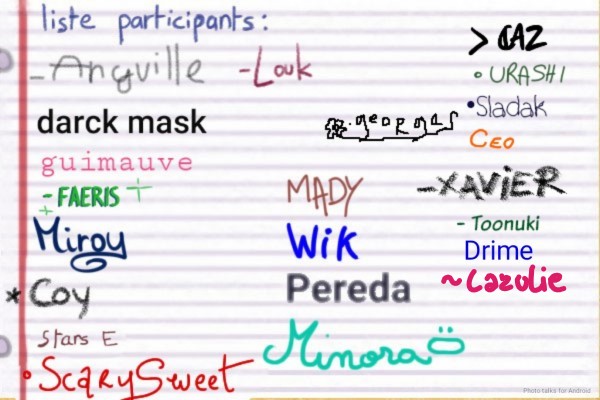 liste participants:
- Angville
- Louk
darck mask
guimauve
- FAERIS +
+
Miroy
* Coy
Stars E
° ScarySweet
georges
MADY
Wik
Pereda
Minora
> CAZ
° URASHI
• Sladak
Ceo
- XAViER
- Toonuki
Drime
~ Lazulie
Photo talks for Android